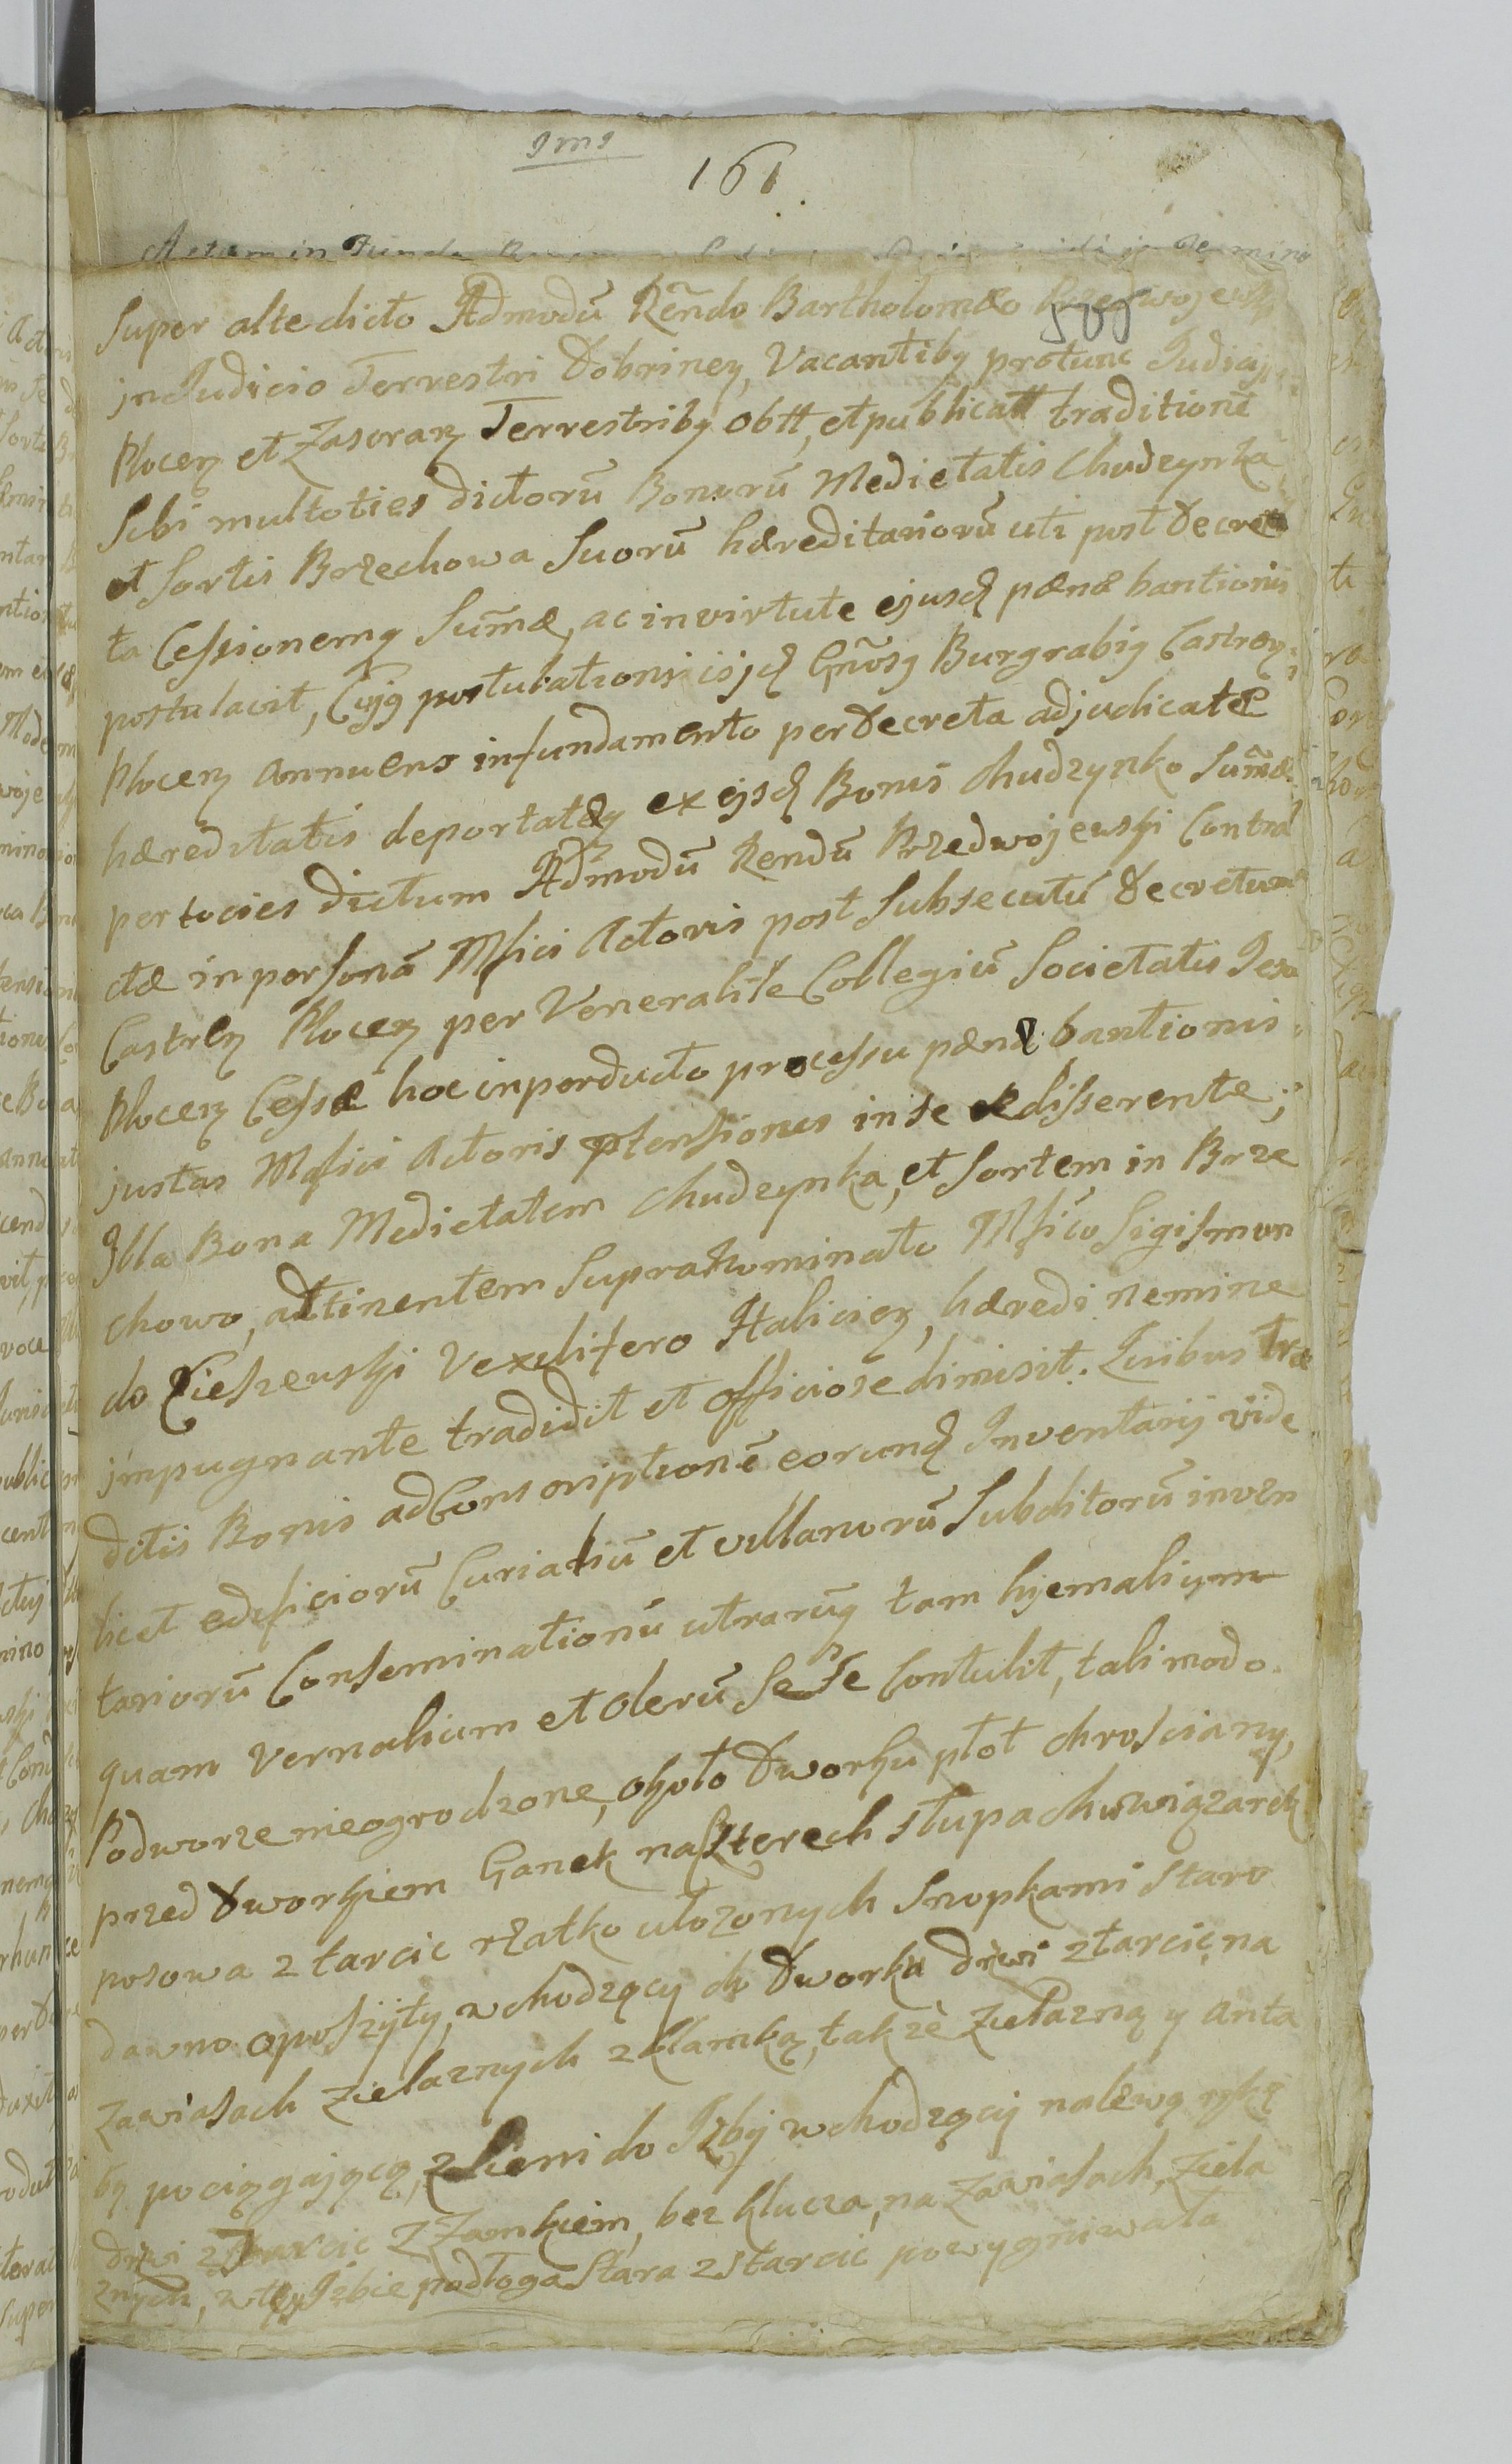 161
Actum in
super alte dicto Admodũ Rẽndo Bartholomæo Przedwojewski
in Judicio Terrestri Dobrinen, Vacantibq protunc Judicijs
Plocen et Zascran Terrestribq obtt, et publicatt traditionẽ
sibi multoties dictorũ Bonorũ Medietatis Chudzynka
et Sortis Brzechowa Suorũ hæreditariorũ uti post Decreta
ta Cessionemq Sum̃æ, ac in virtute ejusd pænæ bantionis
postulavit, Cujq postulationi isjd Gñosq Burgrabiq Castren
Plocen annuens in fundamento per Decreta adjudicatæ
hæreditatis deportatæq ex ijsd Bonis Chudzynko Sum̃æ
per tocies dictum Admodũ Rendũ Przedwojewski Contra
ctæ in personã Mfici Actoris post Subsecutũ Decretum
Castren Plocen per Venerabile Collegiũ Societatis Jesu
Plocen Cessæ hoc in perducto processu pænæ bantionis
justas Mfici Actoris ptensiones in se edisserente,
Illa Bona Medietatem Chudzynka, et Sortem in Brze
chowo, adtinentem Supra Nominato Mfico Sigismun
do Cieszewski Vexilifero Halicien, hæredi nemine
impugnante tradidit et officiose dimisit. Quibus tra
ditis Bonis ad Conscriptionẽ eorund Inventarij vide
licet edificiorũ Curialiũ et villanorũ Subditorũ inven
tariorũ Conseminationũ utrarũq tam hyemalium
quam vernalium et olerũ Sese Contulit, tali modo.
Podworze nieogrodzone, około Dworku płot chrosciany,
przed Dworkiem Ganek na szterech słupach w wiązarek
posowa z tarcic rzatko ułozonych Snopkami staro
dawno oposzÿty, wchodzący do Dworka drzwi z tarcic na
zawiasach zielaznych z klamką, takze zielazną y anta
bą pociągającą, z Sieni do Izby wchodzący na lewą rękę
drzwi z Tarcic z Zamkiem, bez klucza, na zawiasach ziela
znych, w tey Izbie podłoga stara z tarcic powygniwała